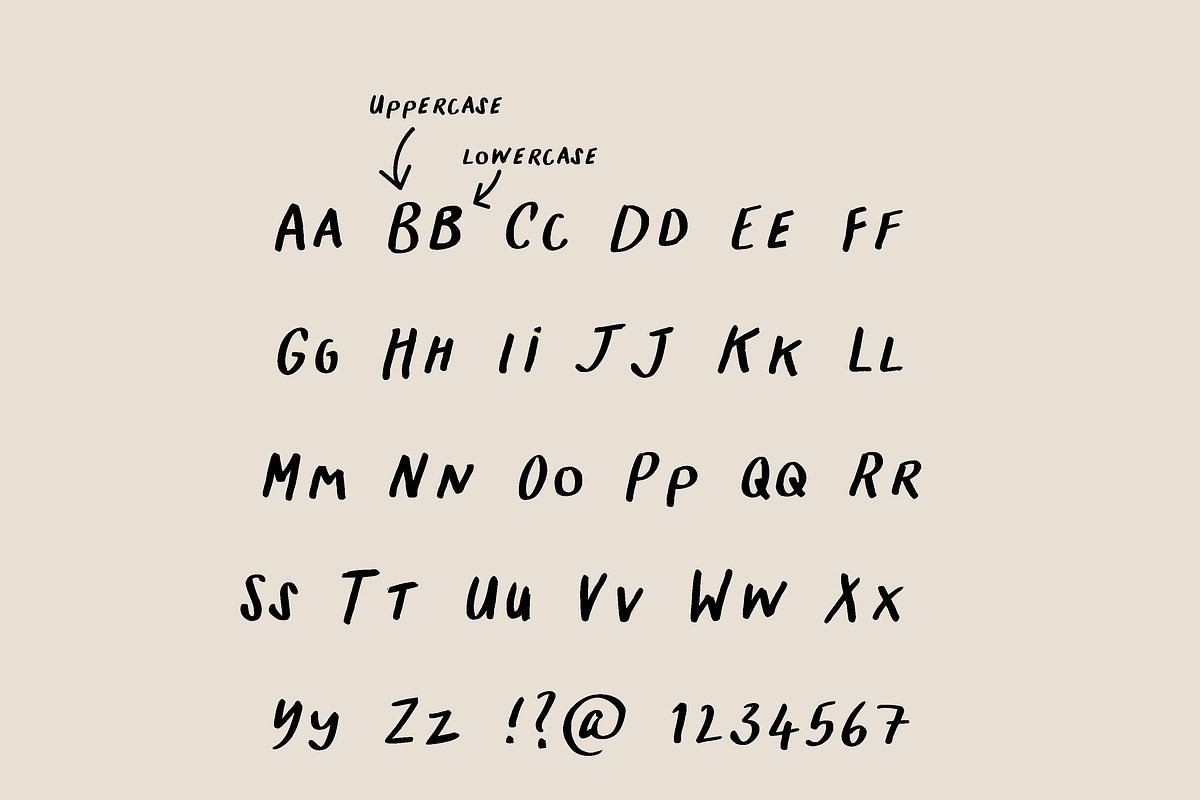 UPPERCASE
LOWERCASE
AA BB CC DD EE FF
GG HH Ii JJ KK LL
MM NN OO PP QQ RR
SS TT UU VV WW XX
YY ZZ !?@ 1234567